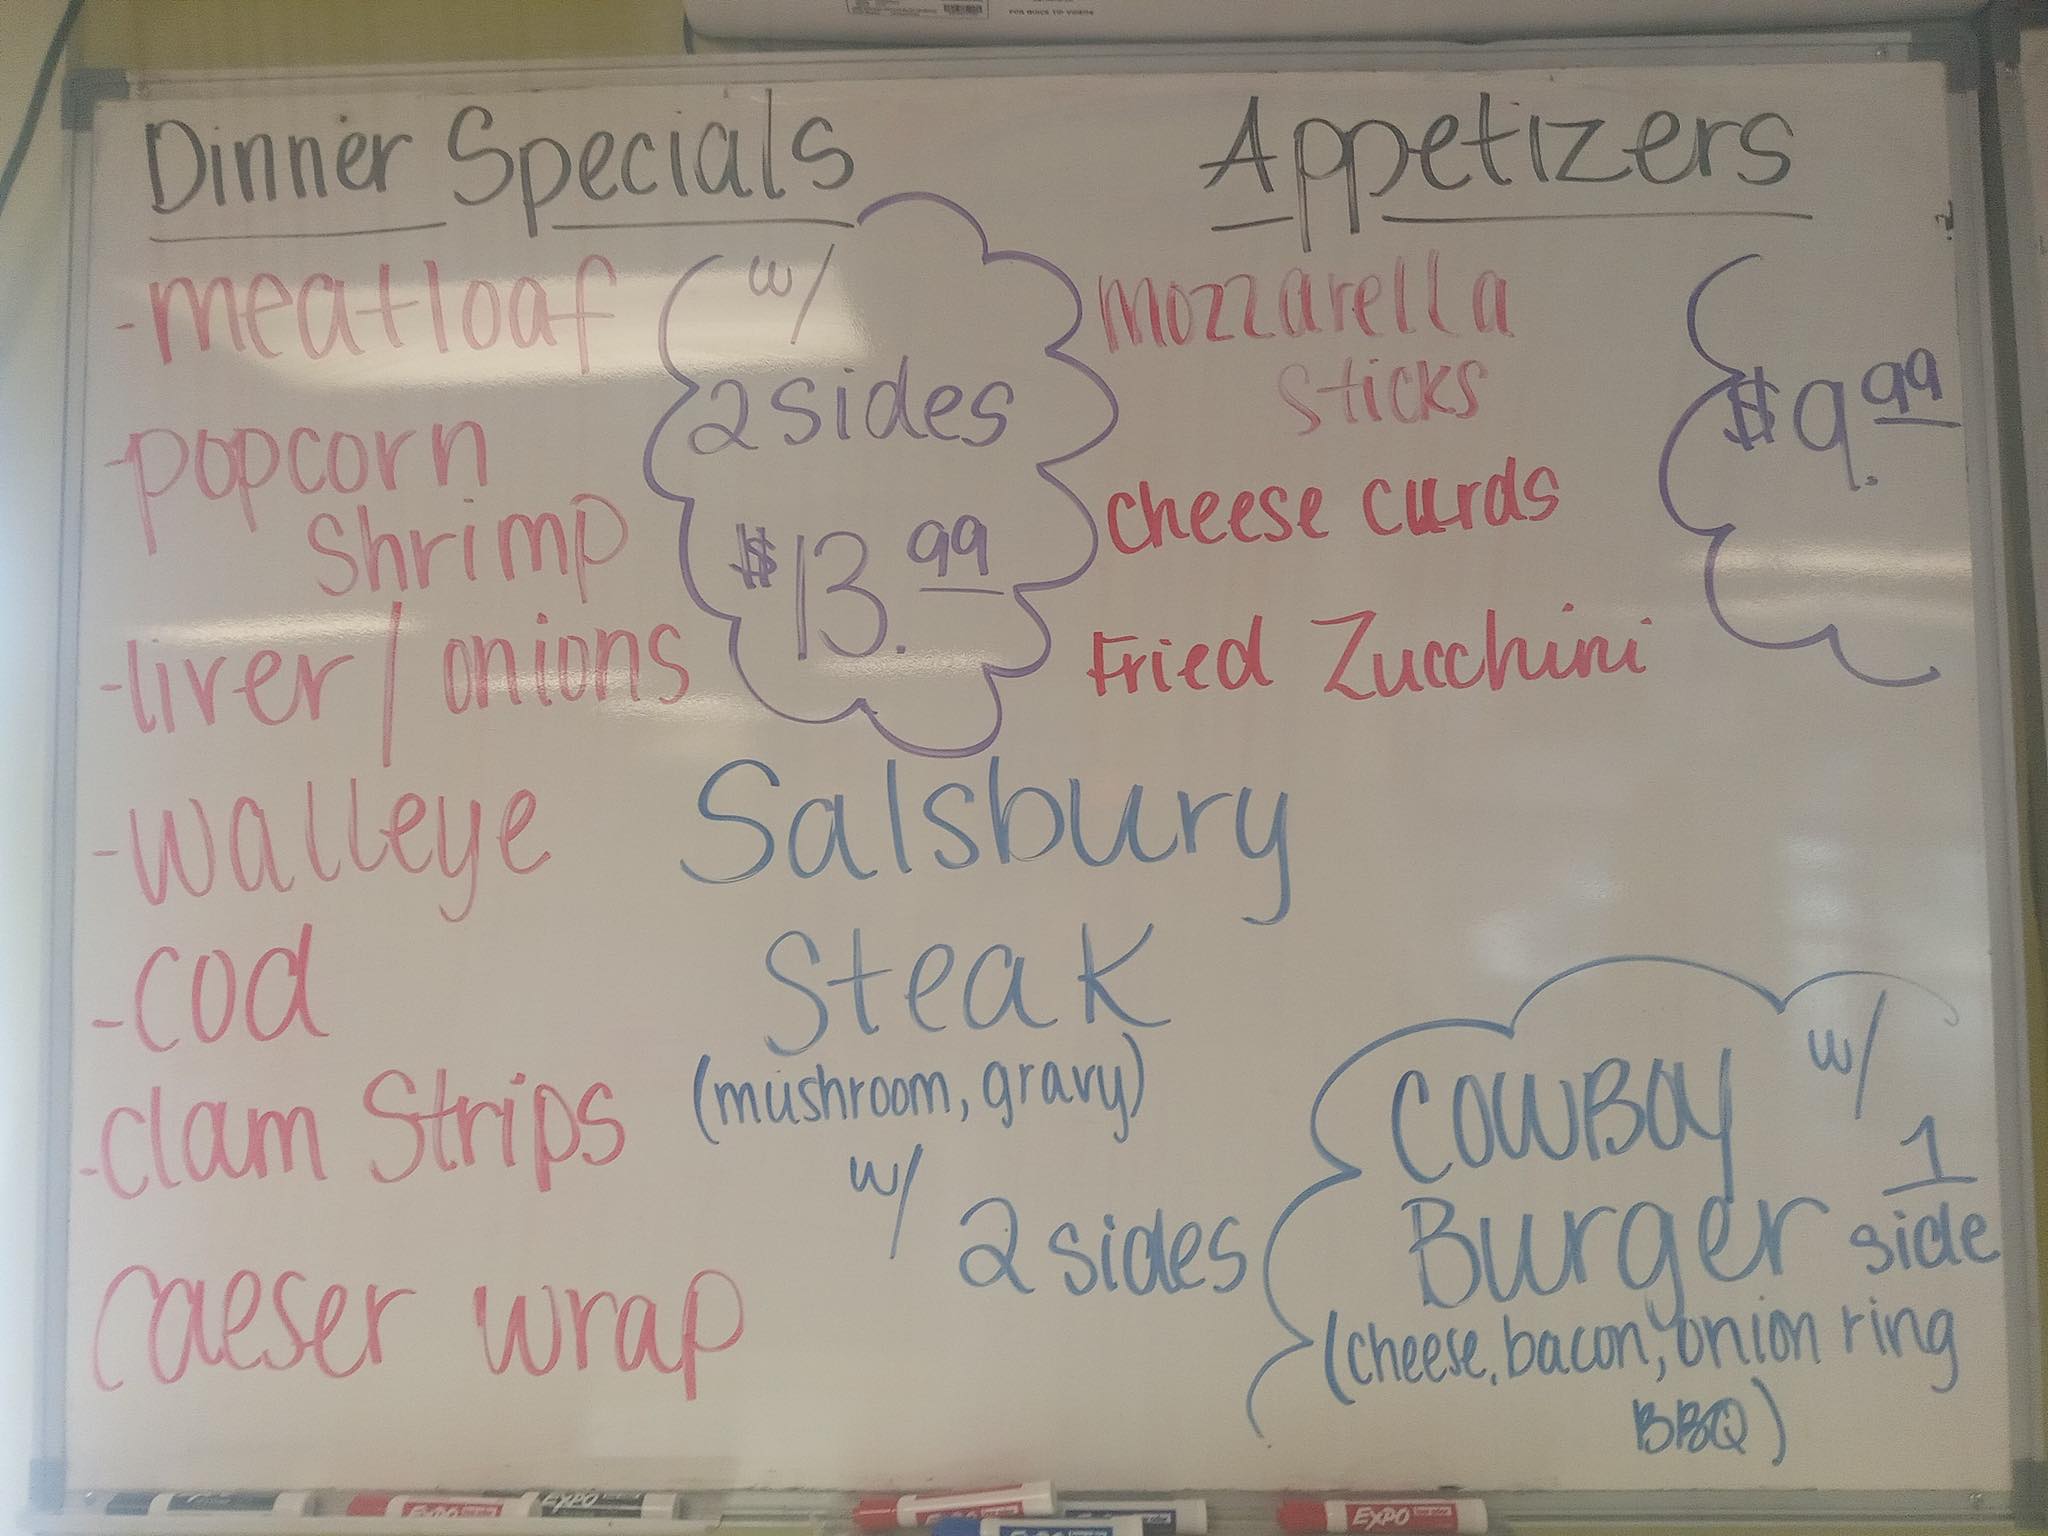 FOR QUICK TIP VIDEOS
Dinner Specials
-meatloaf
-popcorn
shrimp
-liver/onions
-walleye
-cod
-clam strips
caeser wrap
w/
2 sides
$13.99
Appetizers
mozzarella
sticks
cheese curds
Fried Zucchini
$9.99
Salsbury
Steak
(mushroom, gravy)
w/
2 sides
COWBOY w/
Burger 1
side
(cheese, bacon, onion ring
BBQ)
EXPO
EXPO
EXPO